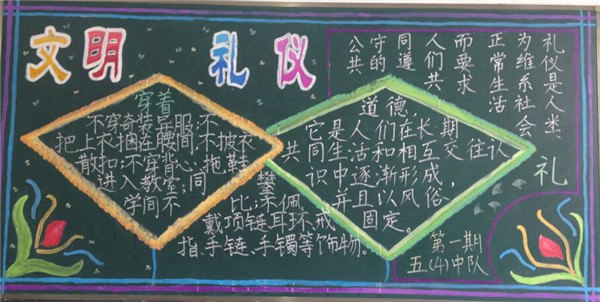 文明 礼仪
穿着
不穿奇装异服,不
把上衣捆在腰间,不披衣
散扣;不穿背心,拖鞋
进入教室,同
学间不
攀
比;不佩
戴项链、耳环、戒
指、手链、手镯等饰物。
道德,
它是人们在长期
共同生活和相互交往认
识中逐渐形成,
并且以风俗
固定。
礼仪是人类
为维系社会
正常生活
而要求
人们共
同遵
守的
公共
礼
第一期
五(4)中队